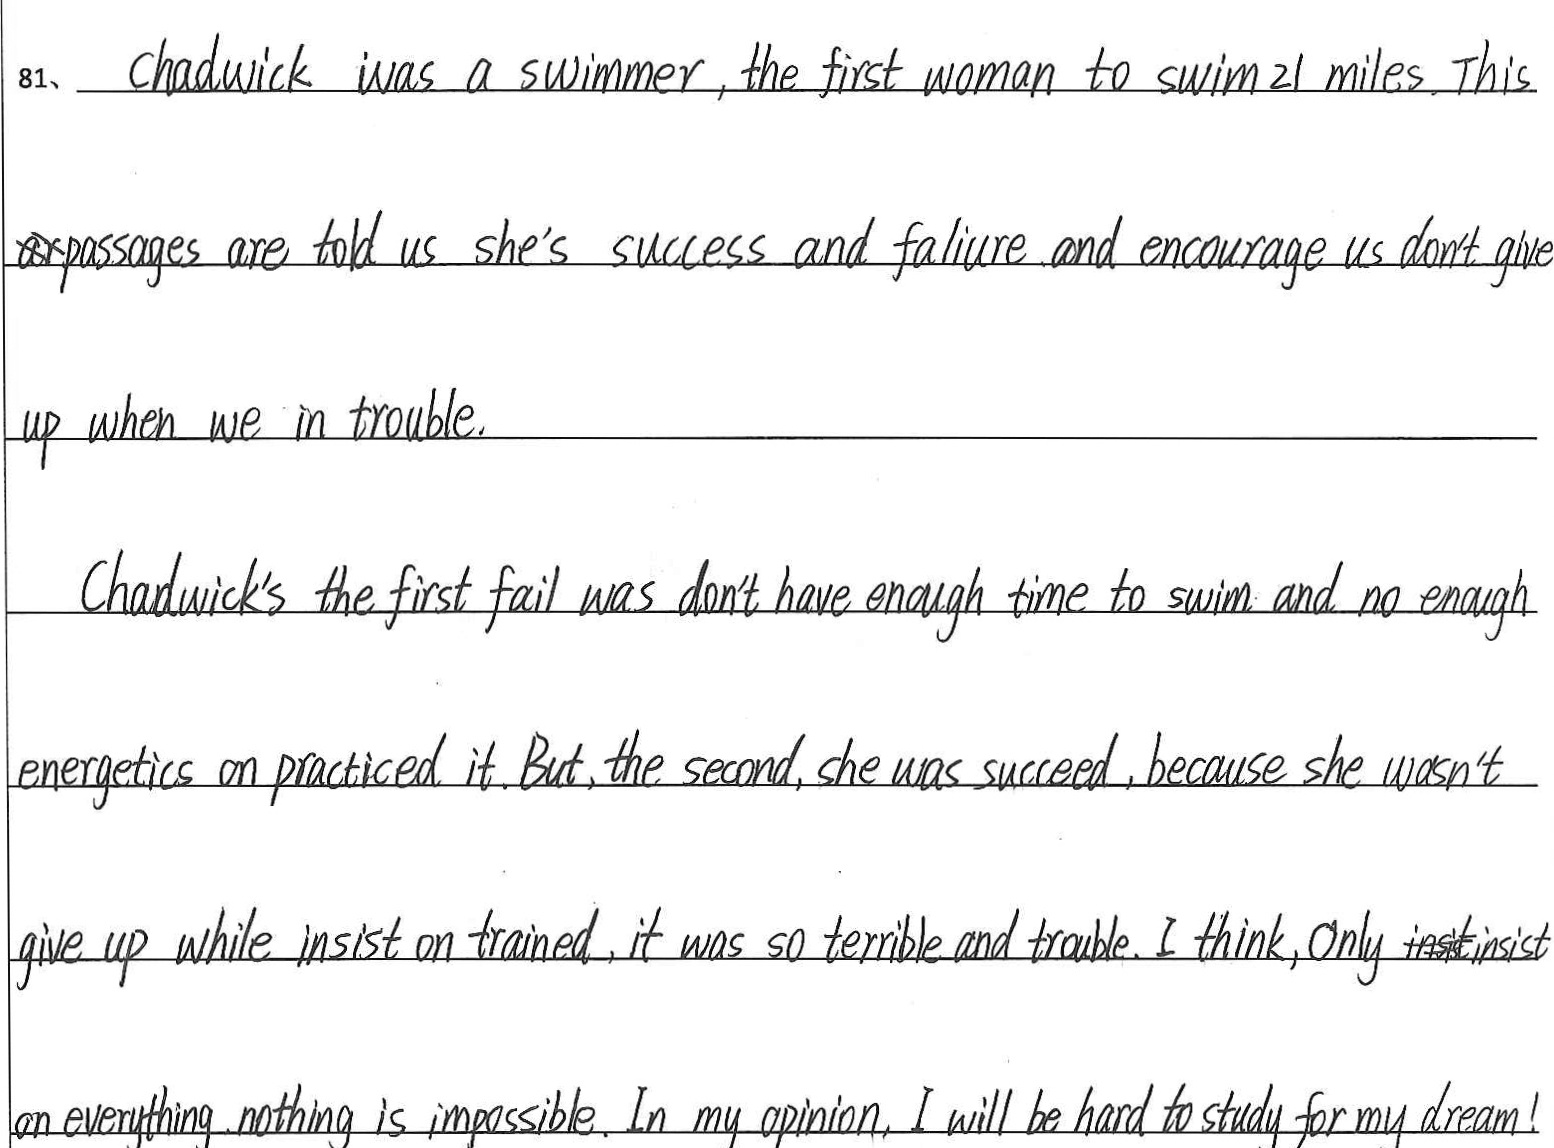 81、 Chadwick was a swimmer, the first woman to swim 21 miles. This
passages are told us she's success and faliure and encourage us don't give
up when we in trouble.
Chadwick's the first fail was don't have enough time to swim and no enough
energetics on practiced it. But, the second, she was succeed, because she wasn't
give up while insist on trained, it was so terrible and trouble. I think, Only insist
on everything, nothing is impossible. In my opinion, I will be hard to study for my dream!